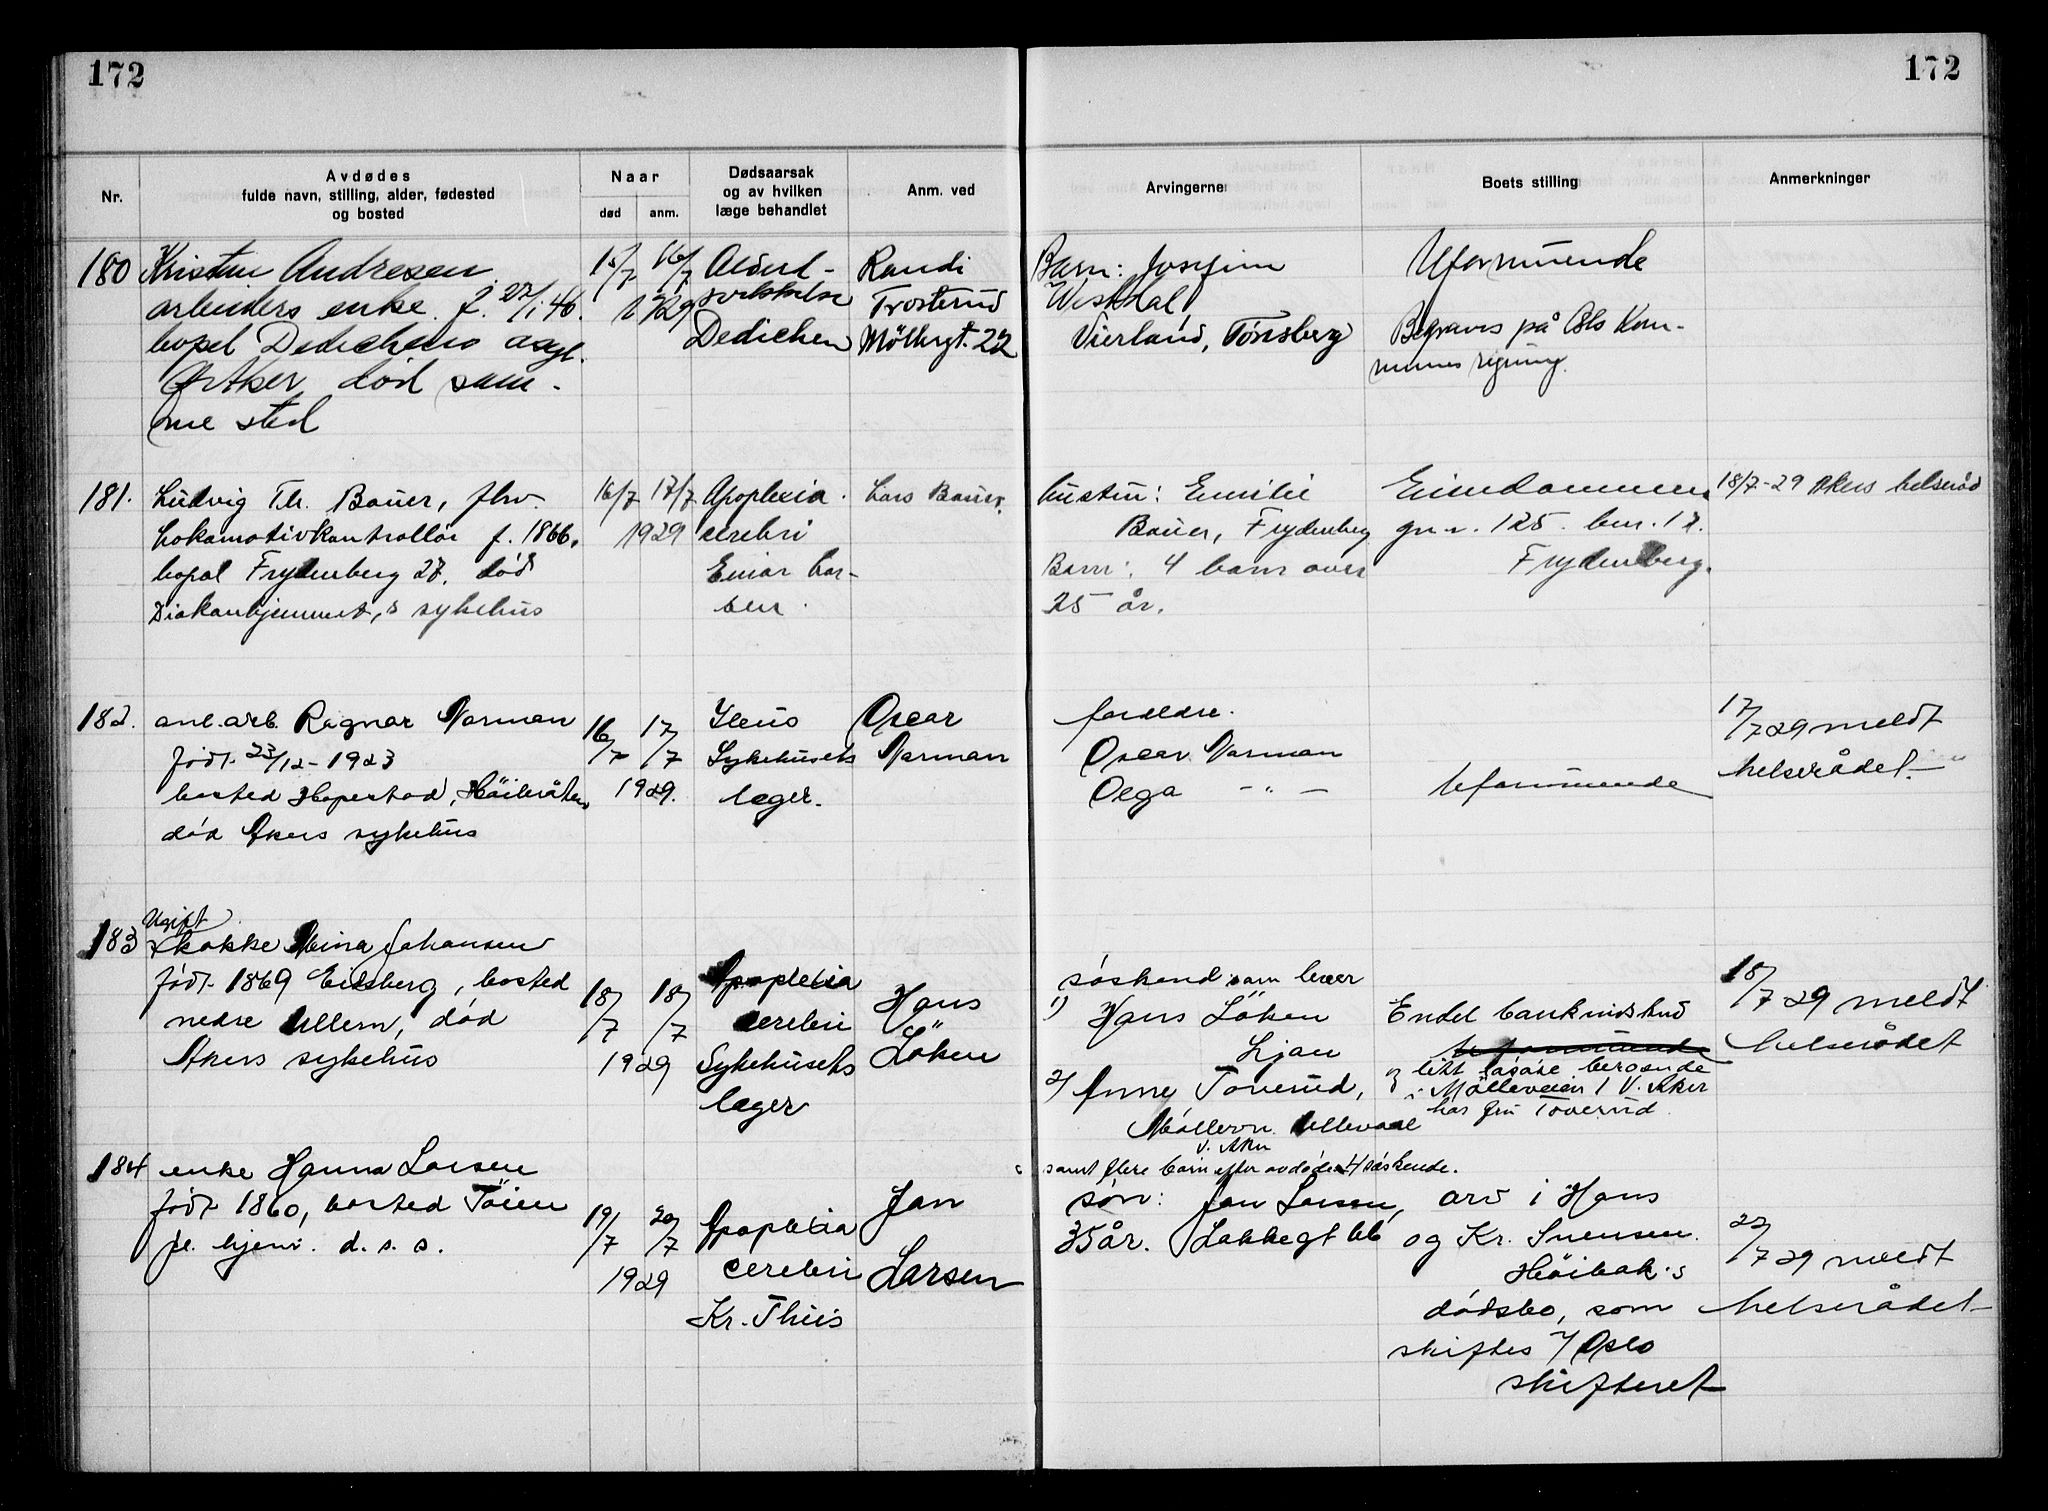 172
172
Nr.
Avdødes
fulde navn, stilling, alder, fødested
og bosted
Naar
død
anm.
Dødsaarsak
og av hvilken
læge behandlet
Anm. ved
Arvingerne
Boets stilling
Anmerkninger
180
Kristine Andresen
arbeiders enke. f. 27/1 46.
bopel Dedichens asyl.
Ø. Aker død sam-
me sted
15/7 16/7
1929
Alderd-
Dedichen
Randi
Trosterud
Möllergt. 22
Barn: Josefine
Westdal
Vierland, Tønsberg
Uformuende
Begraves på Oslo Kom-
munes regning.
181.
Ludvig Th. Bauer, fhv.
Lokomotivkontrollör f. 1866.
bopel Frydenberg 27. död
Diakonhjemmets sykehus
16/7 17/7
1929
Apoplexia
cerebri
Einar Lar-
sen.
Lars Bauer.
hustru: Emilie
Bauer, Frydenberg
Barn: 4 barn over
25 år.
Eiendommen
gr.nr. 125. bnr. 17.
Frydenberg.
18/7-29 Akers helseråd
182.
anl.arb. Ragnar Norman
född 23/12-1923
bosted Hopestad, Höibråten
död Akers sykehus
16/7 17/7
1929.
Ileus
Sykehusets
læger.
Oscar
Norman
foreldre.
Oscar Norman
Olga -"-
Uformuende
17/7 29 meldt
helserådet.
183
Ugift
kokke Mina Johansen
född 1869 Eidsberg, bosted
nedre Ullern, död
Akers sykehus
18/7 18/7
1929
Apoplexia
cerebri
Sykehusets
læger
Hans
Löken
söskend som lever
1) Hans Löken
Ljan
2) Anne Toverud,
Möllervn. Ullevaal
V. Aker
samt flere barn efter avdøde 4 söskende.
Endel bankinnskud
uformuende
og litt lösöre beroende
i Mölleveien 1 V. Aker
hos fru Toverud
18/7 29 meldt
helserådet
184
enke Hanna Larsen
född 1860, bosted Töien
hjem. d. s. s.
19/7 20/7
1929
Apoplexia
cerebri
Kr. Thiis
Jan
Larsen
sön: Jan Larsen,
35 år. Lakkegt 66
arv i Hans
og Kr. Svensen
Höibak's
dödsbo, som
skiftes v/ Oslo
skifteret
22/7 29 meldt
helserådet